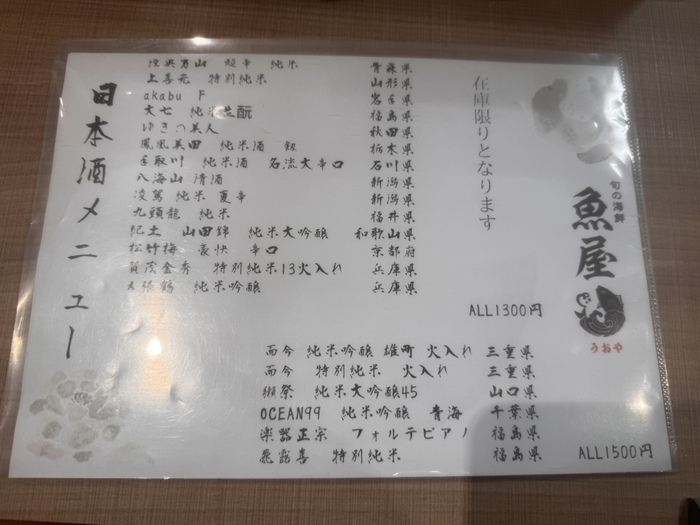 日本酒メニュー
陸奥男山 超辛 純米 青森県
上喜元 特別純米 山形県
akabu F 岩手県
大七 純米生酛 福島県
ゆきの美人 秋田県
鳳凰美田 純米酒 栃木県
手取川 純米酒 名流大辛口 石川県
八海山 清酒 新潟県
凌駕 純米 夏辛 新潟県
九頭龍 純米 福井県
紀土 山田錦 純米大吟醸 和歌山県
松竹梅 豪快 辛口 京都府
賀茂金秀 特別純米13火入れ 兵庫県
純米吟醸 兵庫県
ALL1300円
在庫限りとなります
旬の海鮮
魚屋
うおや
而今 純米吟醸 雄町 火入れ 三重県
而今 特別純米 火入れ 三重県
獺祭 純米大吟醸45 山口県
OCEAN99 純米吟醸 青海 千葉県
楽器正宗 フォルテピアノ 福島県
飛露喜 特別純米 福島県
ALL1500円